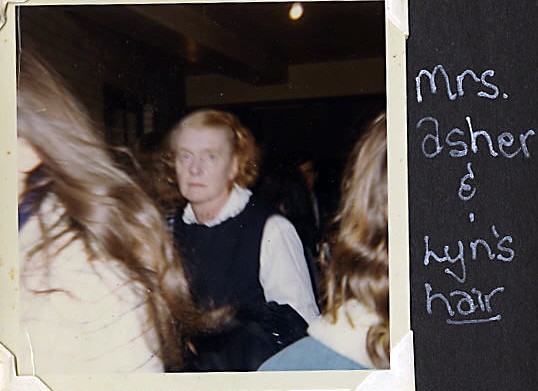 Mrs.
asher
&
Lyn's
hair